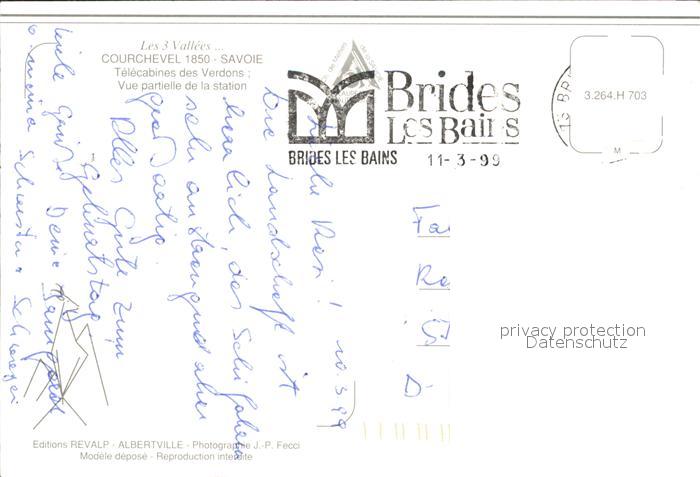 Les 3 Vallées ...
COURCHEVEL 1850 - SAVOIE
Télécabines des Verdons ;
Vue partielle de la station
Brides
Les Bains
BRIDES LES BAINS 11-3-99
3.264.H 703
M
Liebe Rosi! 10.3.99
Die Landschaft ist
herrlich, das Schifahren
sehr anstrengend aber
großartig.
Alles Gute zum
Geburtstag
Viele Grüße Deine
Schwester Schwager
Fa
Ro
D
privacy protection
Datenschutz
Editions REVALP - ALBERTVILLE - Photographie J.-P. Fecci
Modèle déposé - Reproduction interdite